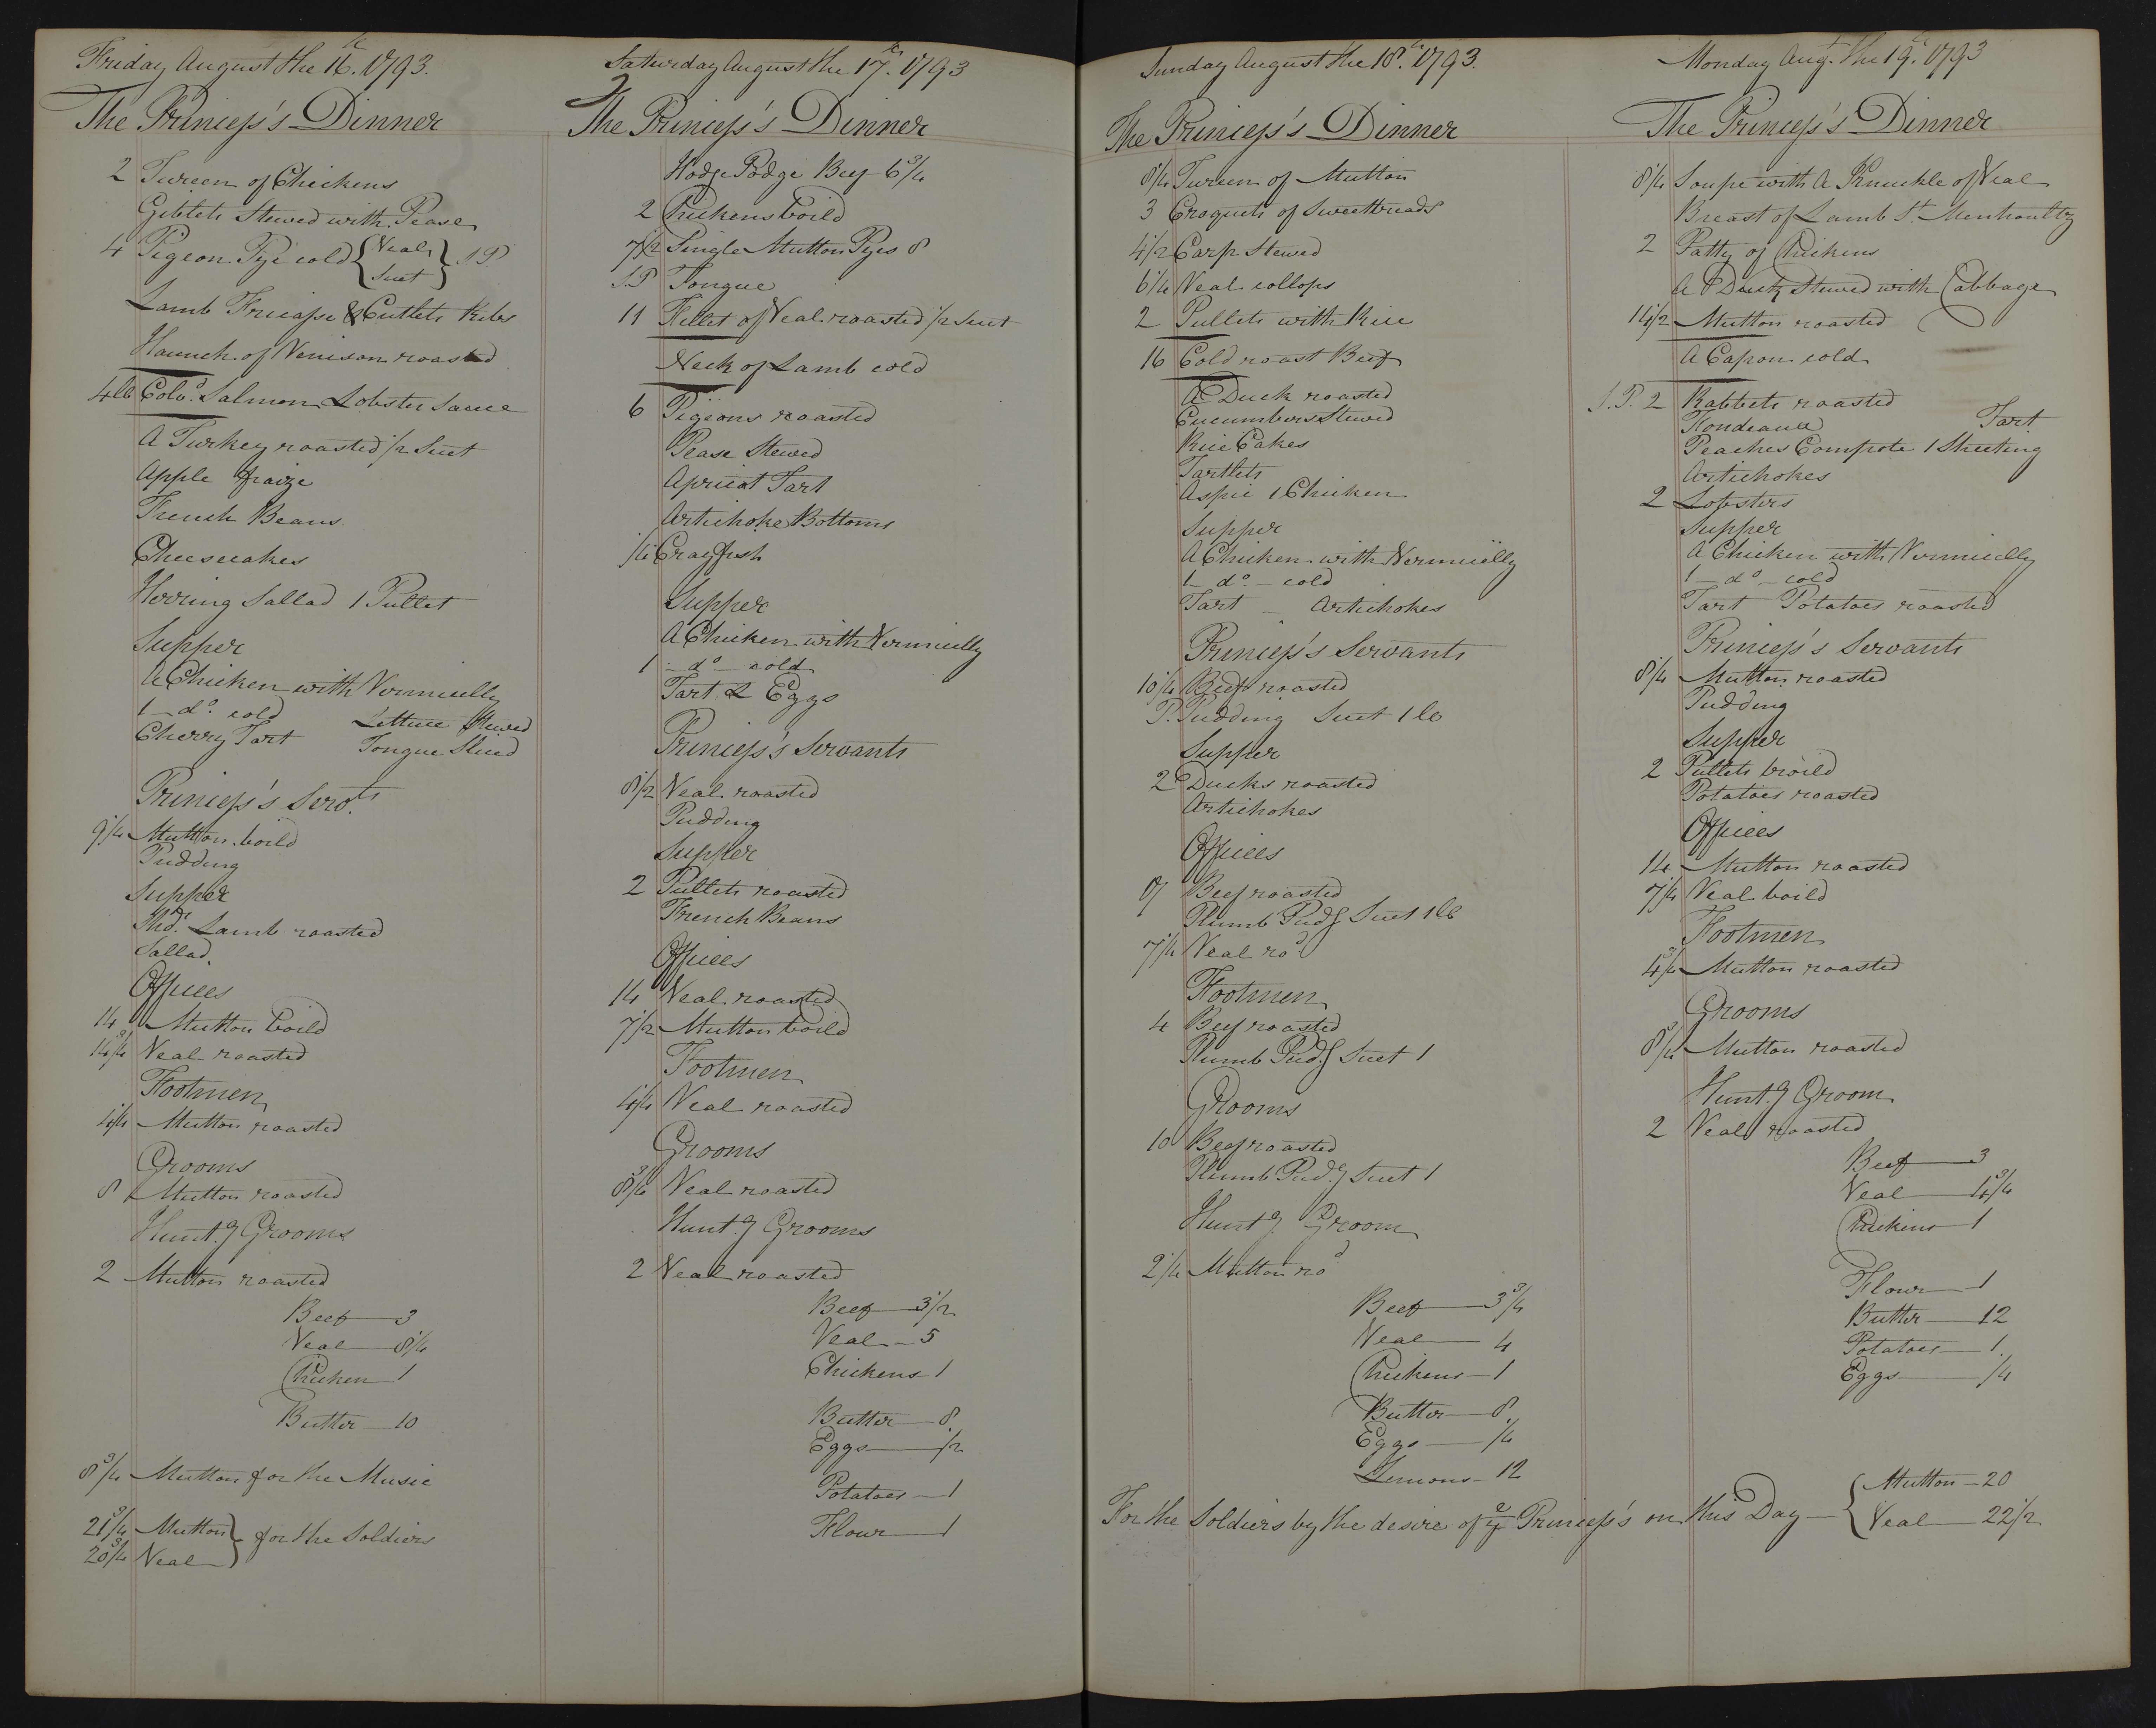 Friday August the 16th. 1793.
The Princess's Dinner
2 Tureen of Chickens
Giblets Stewed with Pease
4 Pigeon Pye cold {Veal Suet} 1 P
Lamb Fricasse & Cutlets Ribs
Haunch of Venison roasted
4lb Cold. Salmon Lobster Sauce
A Turkey roasted 1/2 Suet
Apple fraize
French Beans
Cheesecakes
Herring Sallad 1 Pullet
Supper
A Chicken with Vermicelly
1 - do. cold Lettuce Stewed
Cherry Tart Tongue Sliced
Princess's Servts.
9 1/4 Mutton boild
Pudding
Supper
Hd. Lamb roasted
Sallad
Offices
14 Mutton boild
14 3/4 Veal roasted
Footmen
4 1/4 Mutton roasted
Grooms
8 Mutton roasted
Hunt.g Grooms
2 Mutton roasted
Beef - 3
Veal - 8 1/4
Chicken - 1
Butter - 10
8 3/4 Mutton for the Music
21 3/4 Mutton } for the Soldiers
20 3/4 Veal
Saturday August the 17th. 1793
The Princess's Dinner
Hodge Podge Beef 6 3/4
2 Chickens boild
7 1/2 Single Mutton Pyes 8
S.P Tongue
11 Fillet of Veal roasted 1/2 Suet
Neck of Lamb cold
6 Pigeons roasted
Pease Stewed
Apricot Tart
Artichoke Bottoms
1/4 Crayfish
Supper
A Chicken with Vermicelly
1 - do - cold
Tart & Eggs
Princess's Servants
8 1/2 Veal roasted
Pudding
Supper
2 Pullets roasted
French Beans
Offices
14 Veal roasted
7 1/2 Mutton boild
Footmen
4 1/4 Veal roasted
Grooms
8 3/4 Veal roasted
Hunt.g Grooms
2 Veal roasted
Beef - 3 1/2
Veal - 5
Chickens 1
Butter - 8
Eggs - 1/2
Potatoes - 1
Flour - 1
Sunday August the 18th. 1793.
The Princess's Dinner
8 1/4 Tureen of Mutton
3 Croquets of Sweetbreads
4 1/2 Carp Stewed
6 1/4 Veal collops
2 Pullets with Rice
16 Cold roast Beef
A Duck roasted
Cucumbers Stewed
Rice Cakes
Tartlets
Aspic 1 Chicken
Supper
A Chicken with Vermicelly
1 - do - cold
Tart - Artichokes
Princess's Servants
10 1/4 Beef roasted
P. Pudding Suet 1 lb
Supper
2 Ducks roasted
Artichokes
Offices
9 Beef roasted
Plumb Pudg Suet 1lb
7 1/4 Veal rod
Footmen
4 Beef roasted
Plumb Pud.g Suet 1
Grooms
10 Beef roasted
Plumb Pud.g Suet 1
Hunt.g Groom
2 1/4 Mutton rod
Beef - 3 3/4
Veal - 4
Chickens - 1
Butter - 8
Eggs - 1/4
Lemons - 12
Monday Augt. the 19th. 1793
The Princess's Dinner
8 1/4 Soupe with A Knuckle of Veal
Breast of Lamb St. Menhoultz
2 Patty of Chickens
A Duck Stewed with Cabbage
14 1/2 Mutton roasted
A Capon cold
S.P. 2 Rabbets roasted
Fondeaux Tart
Peaches Compote 1 Sheeting
Artichokes
2 Lobsters
Supper
A Chicken with Vermicelly
1 - do - cold
Tart Potatoes roasted
Princess's Servants
8 1/4 Mutton roasted
Pudding
Supper
2 Pullets broild
Potatoes roasted
Offices
14 Mutton roasted
7 1/4 Veal boild
Footmen
4 3/4 Mutton roasted
Grooms
8 3/4 Mutton roasted
Hunt.g Groom
2 Veal roasted
Beef - 3
Veal - 4 3/4
Chickens 1
Flour - 1
Butter - 12
Potatoes - 1
Eggs - 1/4
For the Soldiers by the desire of ye Princess's on this Day - { Mutton - 20
Veal - 22 1/2